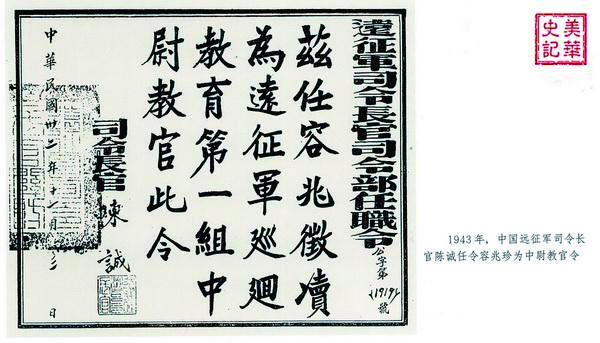 遠征軍司令長官司令部任職令
公字第1919號
茲任容兆徵牘
為遠征軍巡迴
教育第一組中
尉教官此令
司令長官 陳誠
中華民國卅二年十一月 日
美華
史記
1943年，中国远征军司令长
官陈诚任令容兆珍为中尉教官令